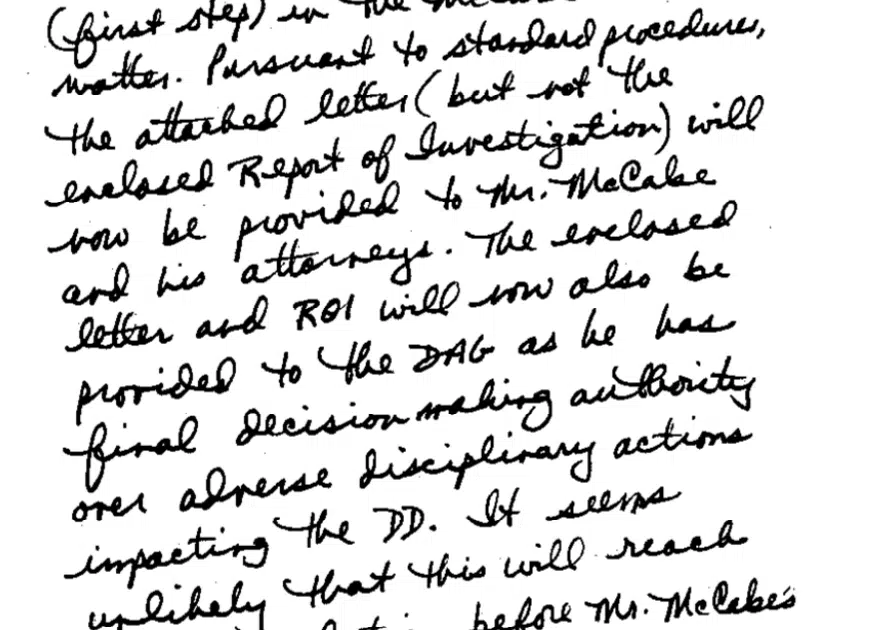 (first step) in the McCabe
matter. Pursuant to standard procedures,
the attached letter (but not the
enclosed Report of Investigation) will
now be provided to Mr. McCabe
and his attorneys. The enclosed
letter and ROI will now also be
provided to the DAG as he has
final decision making authority
over adverse disciplinary actions
impacting the DD. It seems
unlikely that this will reach
before Mr. McCabe's